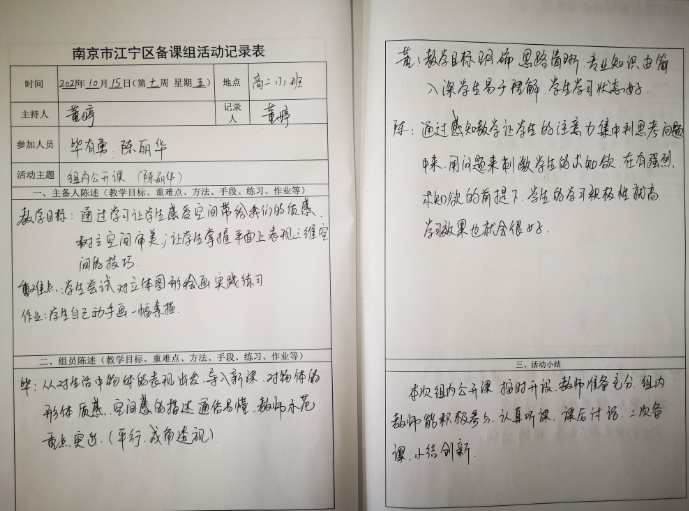 南京市江宁区备课组活动记录表
时间 2021年10月15日(第十周 星期五) 地点 高二(1)班
主持人 董婷 记录人 董婷
参加人员 毕有勇、陈丽华
活动主题 组内公开课 (陈丽华)
一、主备人陈述(教学目标、重难点、方法、手段、练习、作业等)
教学目标:通过学习让学生感受空间带给我们的质感,
树立空间审美;让学生掌握平面上表现三维空
间的技巧.
重难点:学生尝试对立体图形绘画实践练习
作业:学生自己动手画一幅素描.
二、组员陈述(教学目标、重难点、方法、手段、练习、作业等)
毕:从对生活中物体的表现出发,导入新课.对物体的
形体质感、空间感的描述通俗易懂,教师示范
重点突出.(平行.成角透视)
董:教学目标明确 思路清晰 专业知识由简
入深学生易于理解 学生学习状态好.
陈:通过感知教学让学生的注意力集中到思考问题
中来,用问题来刺激学生的求知欲,在有强烈
求知欲的前提下,学生的学习积极性就高
学习效果也就会很好.
三、活动小结
本次组内公开课 按时开设,教师准备充分,组内
教师能积极参与、认真听课、课后讨论、二次备
课、小结创新.